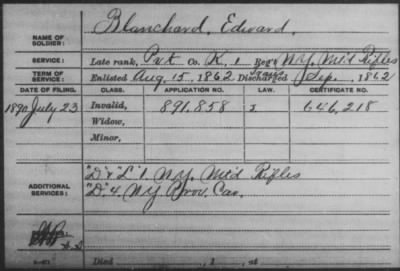 Blanchard, Edward.
NAME OF SOLDIER:
SERVICE: Late rank, Pvt Co. K, 1 Reg't N.Y. Mt'd Rifles
TERM OF SERVICE: Enlisted Aug. 15, 1862 Discharged Sep. , 1862
DATE OF FILING. CLASS. APPLICATION NO. LAW. CERTIFICATE NO.
1890 July 23 Invalid, 891,858 646,218
Widow,
Minor,
ADDITIONAL SERVICES: "D" & "L" 1, N.Y. Mt'd Rifles
"D" 4, N.Y. Prov. Cav.
Died , 1 , at